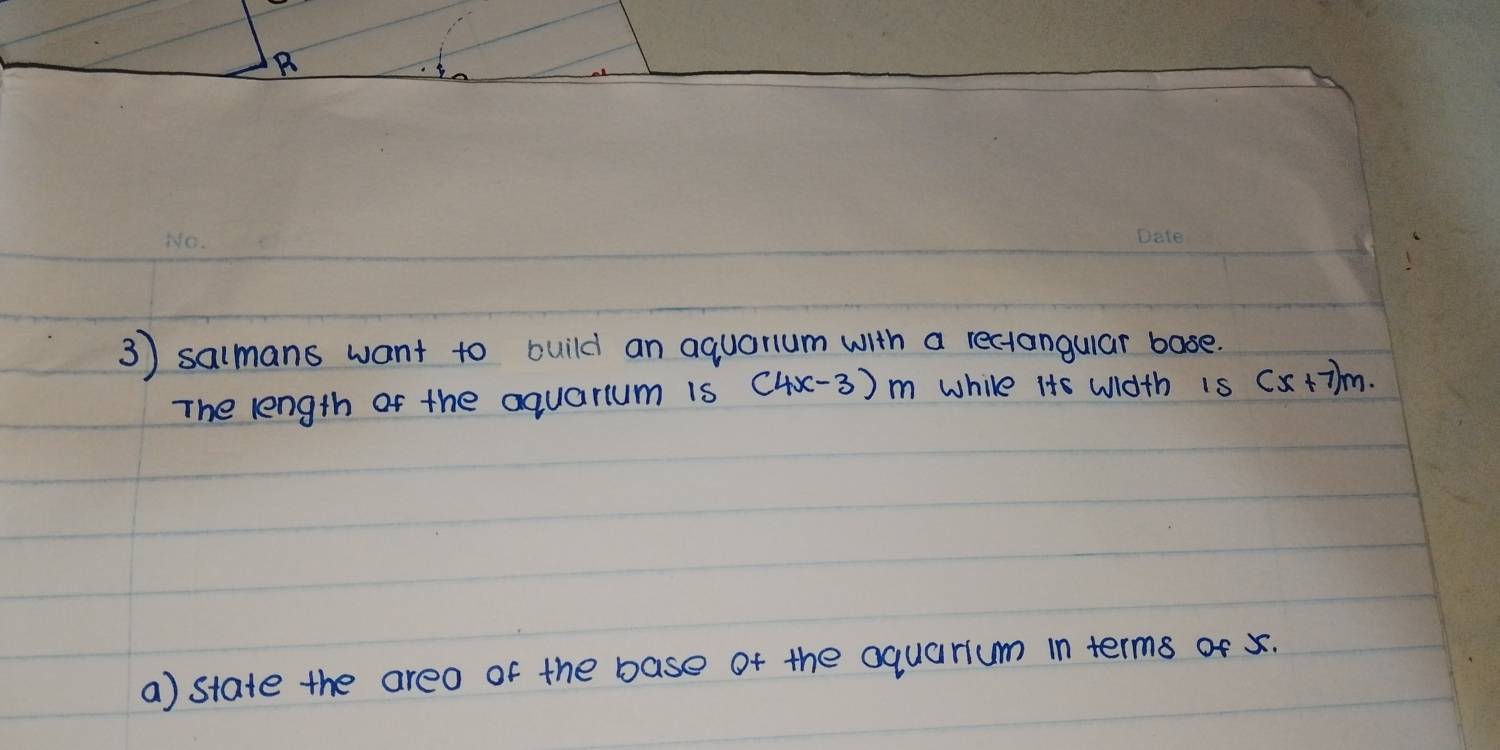 R
No.
Date
3) salmans want to build an aquarium with a rectangular base.
The length of the aquarium is (4x-3)m while its width is (x+7)m.
a) state the area of the base of the aquarium in terms of x.